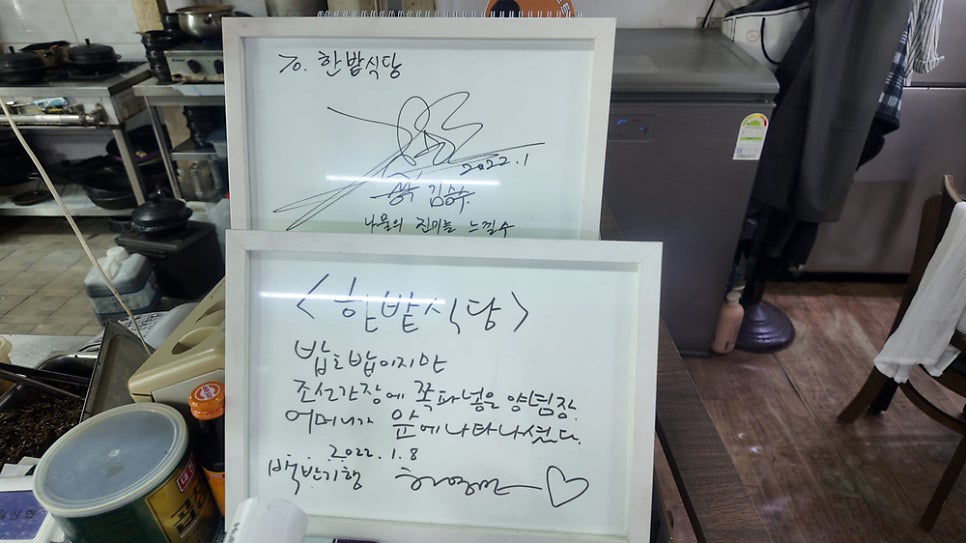 To. 한밭식당
2022.1
배우 김승수
나물의 진미를 느낄수
<한밭식당>
밥도 밥이지만
조선간장에 쪽파 넣은 양념장.
어머니가 앞에 나타나셨다.
2022.1.8
백반기행 허영만